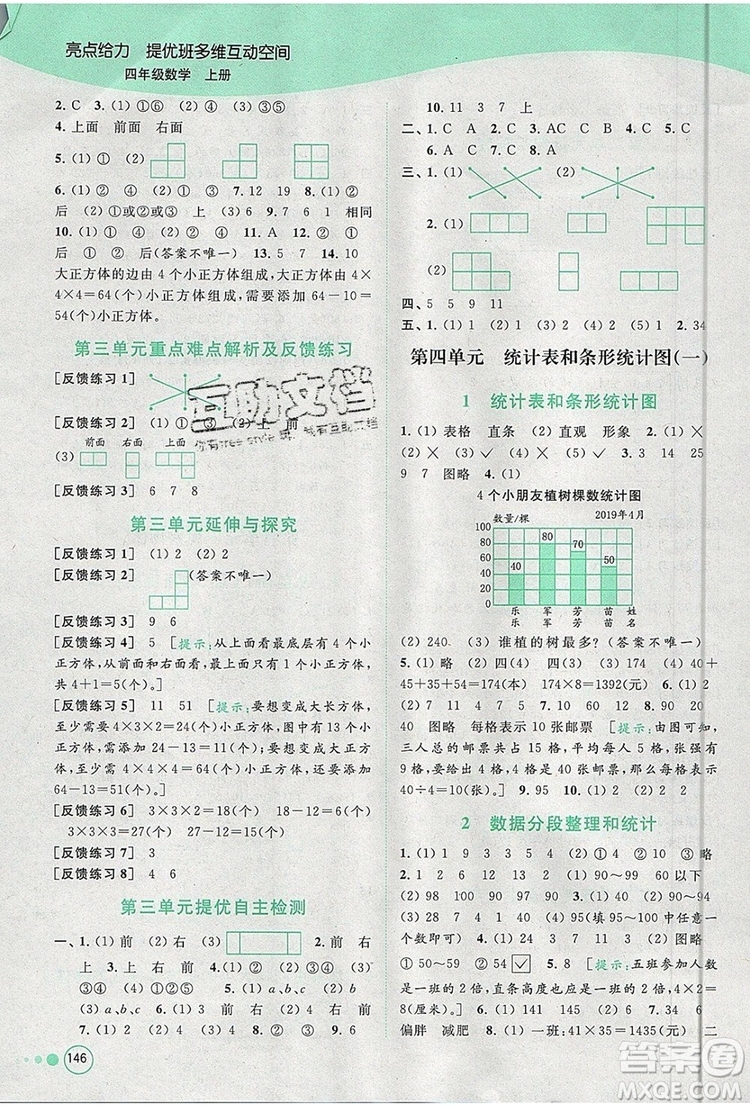 亮点给力 提优班多维互动空间
四年级数学 上册
2. C 3. (1) ①⑥ (2) ④ (3) ②③⑤
4. 上面 前面 右面
5. (1) ① (2)
6. (1) ② ④ (2) ④ ① ⑤ 7. 12 19 8. (1) ②
后 (2) ①或②或③ 上 (3) 6 9. 7 6 1 相同
10. (1) ① ④ (2) ① ④ 11. A 12. ① 右
后 ① ② 后 (答案不唯一) 13. 5 7 14. 10
大正方体的边由 4 个小正方体组成,大正方体由 4×
4×4=64(个)小正方体组成,需要添 64-10=
54(个)小正方体。
第三单元重点难点解析及反馈练习
[反馈练习 1]
[反馈练习 2] (1) ① (2) ③ ④
前面 右面 上面
(3)
[反馈练习 3] 6 7 8
第三单元延伸与探究
[反馈练习 1] (1) 2 (2) 2
[反馈练习 2] (答案不唯一)
[反馈练习 3] 9 6
[反馈练习 4] 5 [提示:从上面看最底层有 4 个小
正方体,从前面和右面看,最上层只有 1 个正方体,
共 4+1=5(个)。]
[反馈练习 5] 11 51 [提示:要想变成大长方体,
至少需要 4×3×2=24(个)小正方体,图中有 13 个
小正方体,添加 24-13=11(个);要想变成大正方
体,至少需要 4×4×4=64(个)小正方体,添加
64-13=51(个)。]
[反馈练习 6] 3×3×2=18(个) 18-12=6(个)
3×3×3=27(个) 27-12=15(个)
[反馈练习 7] 3
[反馈练习 8] 4 6
第三单元提优自主检测
一、1. (1) 前 (2) 右 (3) 2. 前 右
上 3. 右 上 前 4. (1) ② (2) ① ③
(3) ①②③ 5. (1) a、b、c (2) b
(3) a、c (4) a、b、c 6. (1) ① ③ (2) ②
7. (1) 2 (2) 2 (3) 1 8. 8 9. (1) 6 (2) 9
146
10. 11 3 7 上
二、1. C A 2. C 3. A 4. (1) B (2) C 5. C
6. A C 7. C 8. A
三、1. (1) (2)
2. (1)
(2)
四、5 5 9 11
五、1. (1) ② (2) ① (3) ② ④ (4) 1 2. 34
第四单元 统计表和条形统计图(一)
1 统计表和条形统计图
1. (1) 表格 直条 (2) 直观 形象 2. (1) ×
(2) × (3) ✓ (4) × (5) ✓ 3. 16 45 25
9 7 图略 4. (1)
4 个小朋友植树棵数统计图
数量/棵 2019年4月
100
90
80
70
60
50
40
30
20
10
0
40 80 70 50
乐乐 军军 芳芳 苗苗 姓名
(2) 240 (3) 谁植的树最多?(答案不唯一)
5. (1) 略 (2) 四(4) 四(1) (3) 四(4) 40+
45+35+54=174(元) 174×8=1392(元) 6. (1) 2
(2) 7 11 4 5 7. (1) 2 (2) 2 (3) ② 8. 15 5
40 图略 每格表示 10 张邮票 [提示:由图可知,
三人总的邮票共占 15 格,平均每人 5 格,张强有 4
格,表示 40 张邮票,那么每格表示的邮票数量是
40÷4=10(张)。] 9. 95 10. (1) 2 (2) 2
2 数据分段整理和统计
1. (1) 1 9 3 3 5 4 (2) ① 4 ② 9 ③ 略
2. (1) 2 2 8 4 1 (2) 90~99 60以下
(2) 98 100 90 90 97 (3) 略 3. (1) 40
4 7 28 7 4. ① 54 92 95(填 95~99 中任意一
个数即可) (2) 4 9 14 9 4 (3) 略 (4) 40
① 50~59 ② 54 ✓ 5. 8 [提示:五班参加人数
是一班的 2 倍,直条高度也应是一班的 2 倍,4×2=
8(厘米)。] 6. (1) 141 145 (2) 64 (3) 6 11
偏胖 减肥 (4) 一班:41×35=1435(元) 二
互助文档
答案圈
MXQE.COM